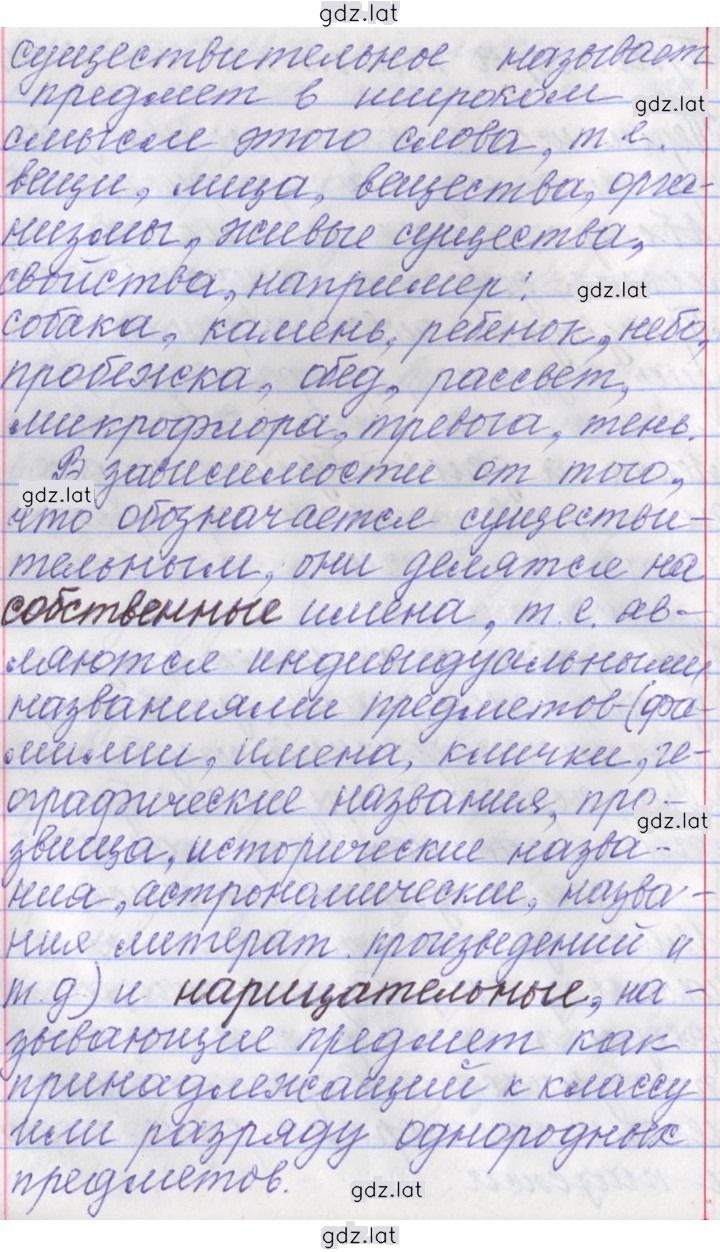 gdz.lat
существительное называет
предмет в широком
gdz.lat
смысле этого слова, т.е.
вещи, лица, вещества, орга-
низмы, живые существа,
свойства, например:
gdz.lat
собака, камень, ребенок, небо,
пробежка, обед, рассвет,
микрофлора, тревога, тень.
В зависимости от того,
gdz.lat
что обозначается существи-
тельным, они делятся на
собственные имена, т.е. яв-
ляются индивидуальными
названиями предметов (фа-
милии, имена, клички, ге-
ографические названия, про-
gdz.lat
звища, исторические назва-
ния, астрономические, назва-
ния литерат. произведений и
т.д) и нарицательные, на-
зывающие предмет как
принадлежащий к классу
или разряду однородных
предметов.
gdz.lat
gdz.lat